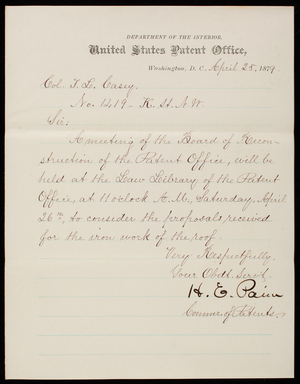 DEPARTMENT OF THE INTERIOR,
United States Patent Office,
Washington, D. C. April 25, 1879.
Col. T. L. Casey,
No. 1419 - K. St. N.W.
Sir:
A meeting of the Board of Recon-
struction of the Patent Office, will be
held at the Law Library of the Patent
Office, at 11 o'clock A.M., Saturday, April
26th, to consider the proposals received
for the iron work of the roof.
Very Respectfully,
Your Obdt. Servt.
H. E. Paine
Commr. of Patents.